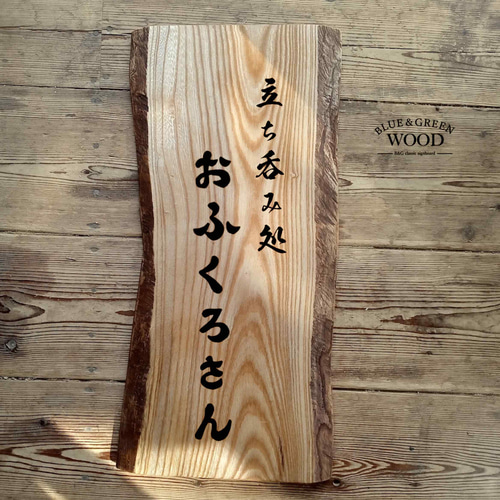 立ち呑み処
おふくろさん
BLUE & GREEN
WOOD
B&G classic signboard